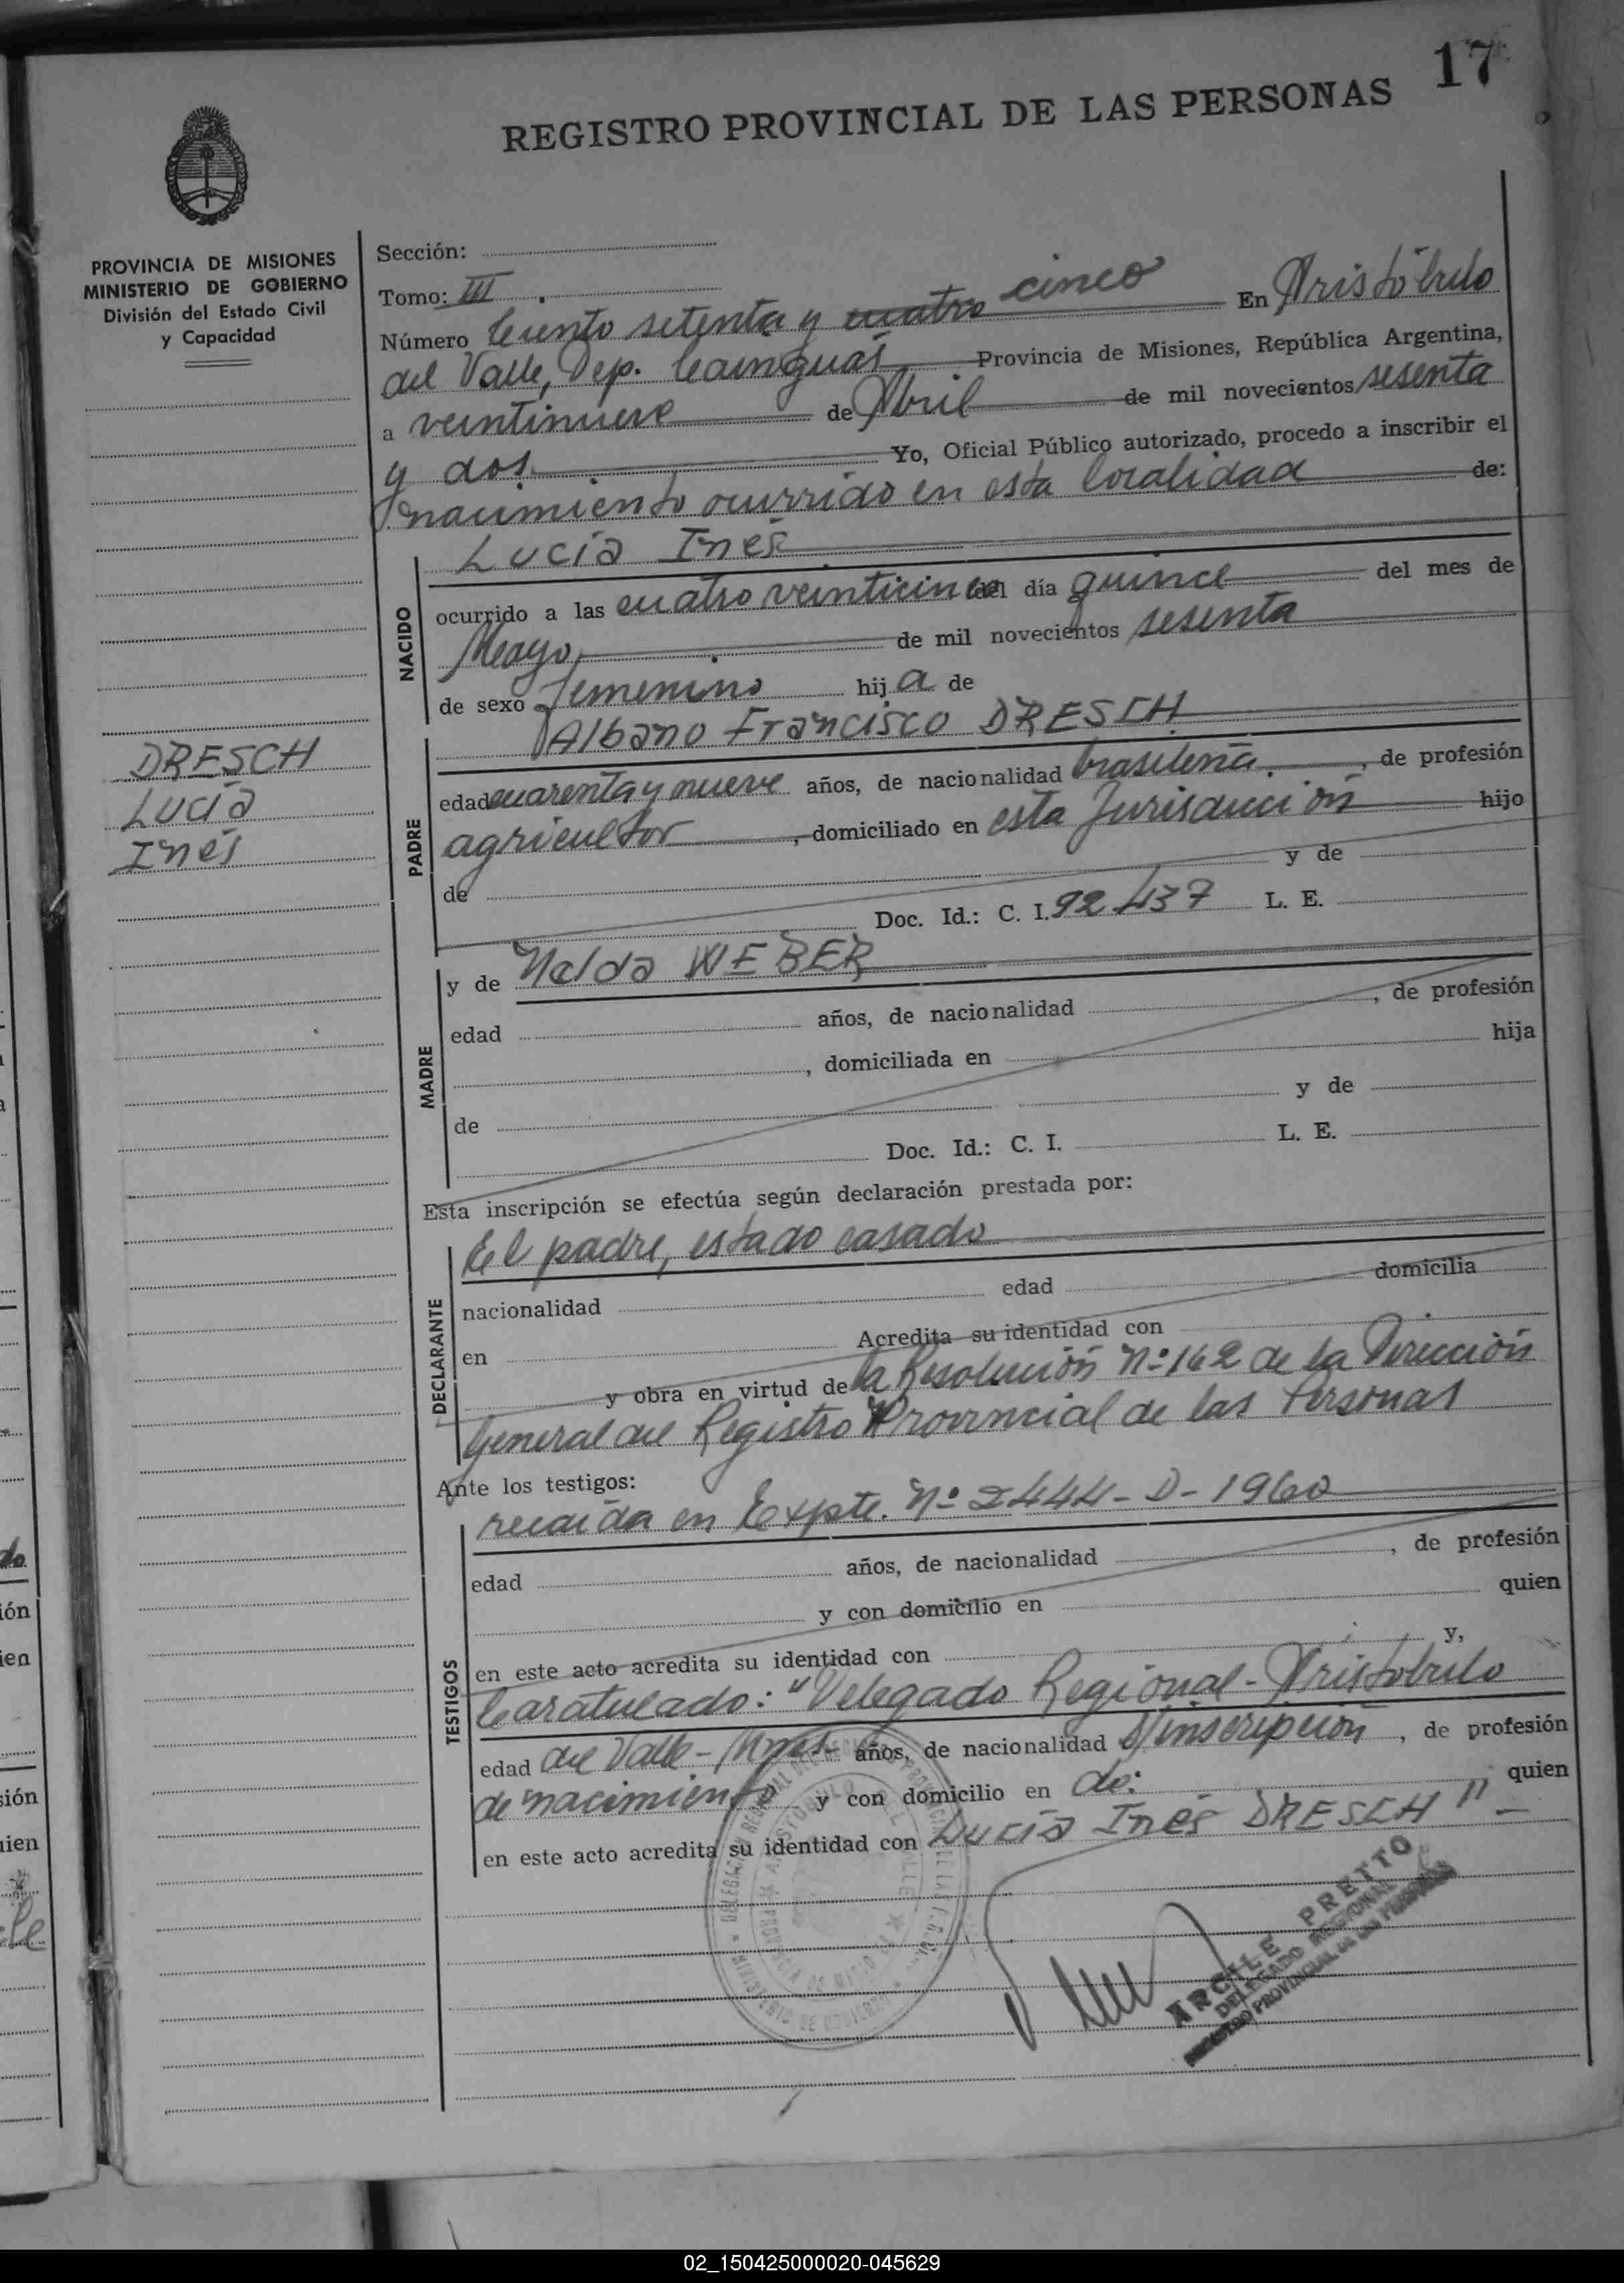 17
REGISTRO PROVINCIAL DE LAS PERSONAS
PROVINCIA DE MISIONES
MINISTERIO DE GOBIERNO
División del Estado Civil
y Capacidad
DRESCH
Lucía
Inés
Sección:
Tomo: III
Número Ciento setenta y cuatro cinco En Aristóbulo
del Valle, Dep. Cainguás Provincia de Misiones, República Argentina,
a veintinueve de Abril de mil novecientos sesenta
y dos. Yo, Oficial Público autorizado, procedo a inscribir el
nacimiento ocurrido en esta localidad de:
NACIDO
Lucía Inés
ocurrido a las cuatro veinticinco del día quince del mes de
Mayo, de mil novecientos sesenta
de sexo femenino hija de
PADRE
Albano Francisco DRESCH
edad cuarenta y nueve años, de nacionalidad brasileña, de profesión
agricultor, domiciliado en esta Jurisdicción hijo
de y de
Doc. Id.: C. I. 92.437 L. E.
MADRE
y de Nelda WEBER
edad años, de nacionalidad , de profesión
, domiciliada en hija
de y de
Doc. Id.: C. I. L. E.
Esta inscripción se efectúa según declaración prestada por:
DECLARANTE
El padre, estado casado
nacionalidad edad domicilia
en Acredita su identidad con
y obra en virtud de la Resolución Nº 162 de la Dirección
General del Registro Provincial de las Personas
Ante los testigos:
TESTIGOS
recaída en Expte. Nº 2444-D-1960
edad años, de nacionalidad , de profesión
y con domicilio en quien
en este acto acredita su identidad con y,
Caratulado: "Delegado Regional - Aristóbulo
edad del Valle - años, de nacionalidad s/inscripción, de profesión
de nacimiento y con domicilio en de: quien
en este acto acredita su identidad con Lucía Inés DRESCH" -
ARCILE PRETTO
DELEGADO REGIONAL
REGISTRO PROVINCIAL DE LAS PERSONAS
02_150425000020-045629